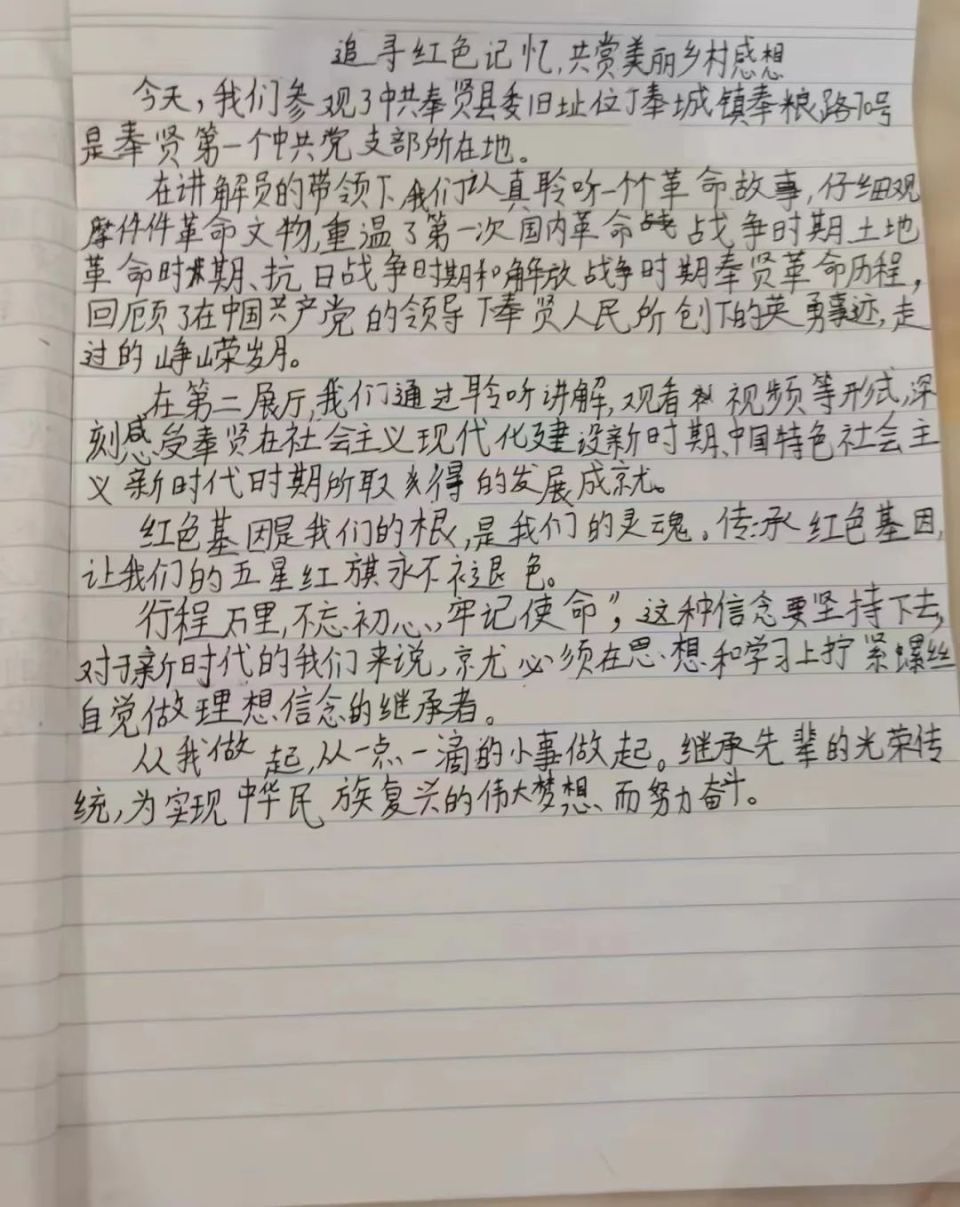 追寻红色记忆,共赏美丽乡村感想
今天,我们参观了中共奉贤县委旧址位于奉城镇奉粮路70号
是奉贤第一个中共党支部所在地。
在讲解员的带领下,我们认真聆听一个个革命故事,仔细观
摩件件革命文物,重温了第一次国内革命战争时期土地
革命时期、抗日战争时期和解放战争时期奉贤革命历程,
回顾了在中国共产党的领导下奉贤人民所创下的英勇事迹,走
过的峥嵘岁月。
在第二展厅,我们通过聆听讲解,观看视频等形式,深
刻感受奉贤在社会主义现代化建设新时期、中国特色社会主
义新时代时期所取得的发展成就。
红色基因是我们的根,是我们的灵魂。传承红色基因,
让我们的五星红旗永不褪色。
行程万里,不忘初心、牢记使命”,这种信念要坚持下去,
对于新时代的我们来说,就必须在思想和学习上拧紧螺丝
自觉做理想信念的继承者。
从我做起,从一点一滴的小事做起。继承先辈的光荣传
统,为实现中华民族复兴的伟大梦想而努力奋斗。